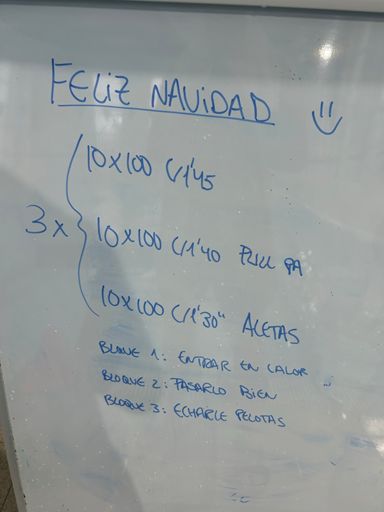 FELIZ NAVIDAD
10x100 c/1'45
3x
10x100 c/1'40 PULL PA
10x100 c/1'30" ALETAS
BLOQUE 1: ENTRAR EN CALOR
BLOQUE 2: PASARLO BIEN
BLOQUE 3: ECHARLE PELOTAS